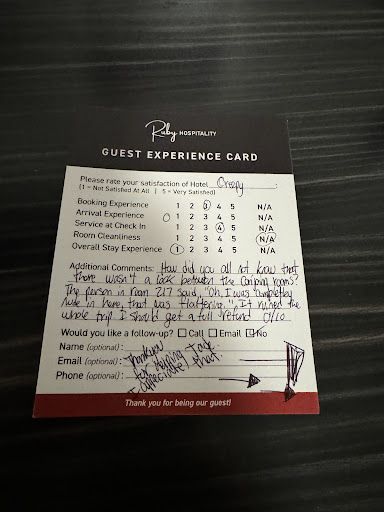 Ruby HOSPITALITY
GUEST EXPERIENCE CARD
Please rate your satisfaction of Hotel Creepy :
(1 = Not Satisfied At All | 5 = Very Satisfied)
Booking Experience 1 2 3 4 5 N/A
Arrival Experience 0 1 2 3 4 5 N/A
Service at Check In 1 2 3 4 5 N/A
Room Cleanliness 1 2 3 4 5 N/A
Overall Stay Experience 1 2 3 4 5 N/A
Additional Comments: How did you all not know that
there wasn't a lock between the conjoining rooms?
The person in room 217 said, "Oh, I was completely
nude in here, that was flattering." It ruined the
whole trip. I should get a full refund 0/10
Would you like a follow-up? Call Email No
Name (optional):
Email (optional):
Phone (optional):
Thank you
for
that.
I appreciate
Thank you for being our guest!